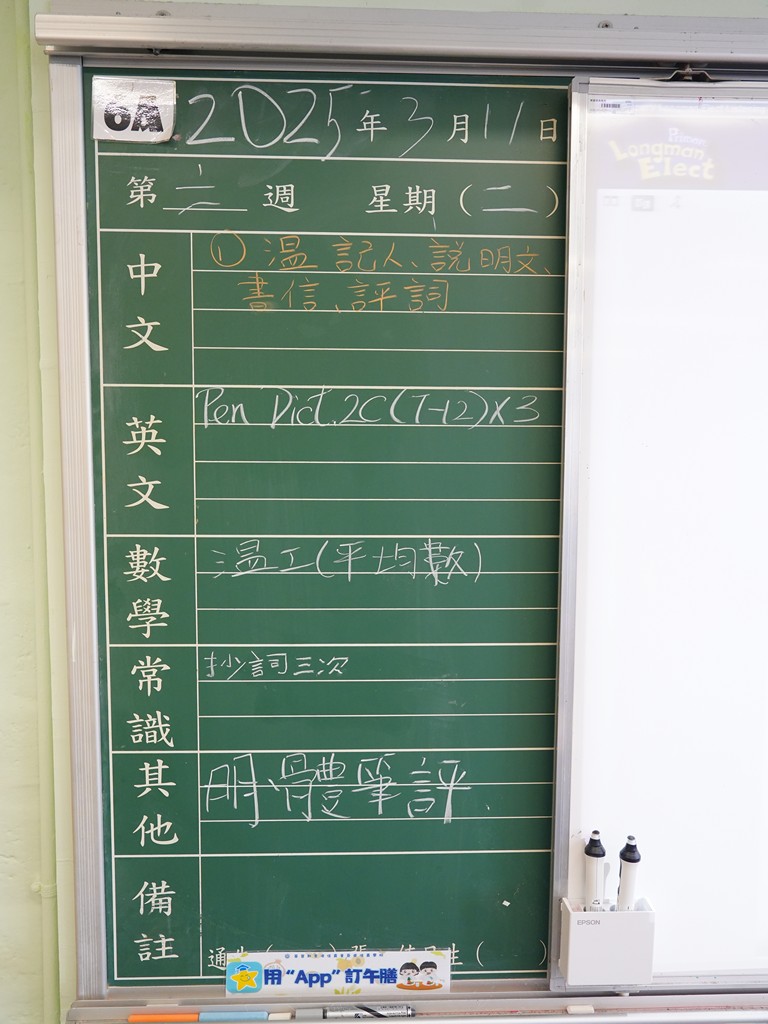 6A 2025年3月11日
第六週 星期(二)
中文
① 溫 記人、說明文、
書信、評詞
英文
Pen Dict. 2C (7-12) x 3
數學
溫工(平均數)
常識
抄詞三次
其他
明體筆評.
備註
通告( 張 值日生( )
用“App”訂午膳
Primary
Longman
Elect
EPSON